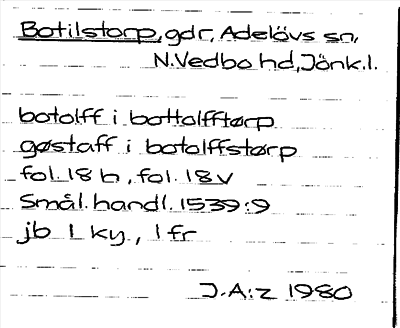 Botilstorp, gdr, Adelövs sn,
N.Vedbo hd, Jönk.l.
botolff i bottolfftørp
gøstaff i botolffstørp
fol. 18 h, fol. 18 v
Smål. handl. 1539:9
jb 1 ky., 1 fr
J.A:z 1980